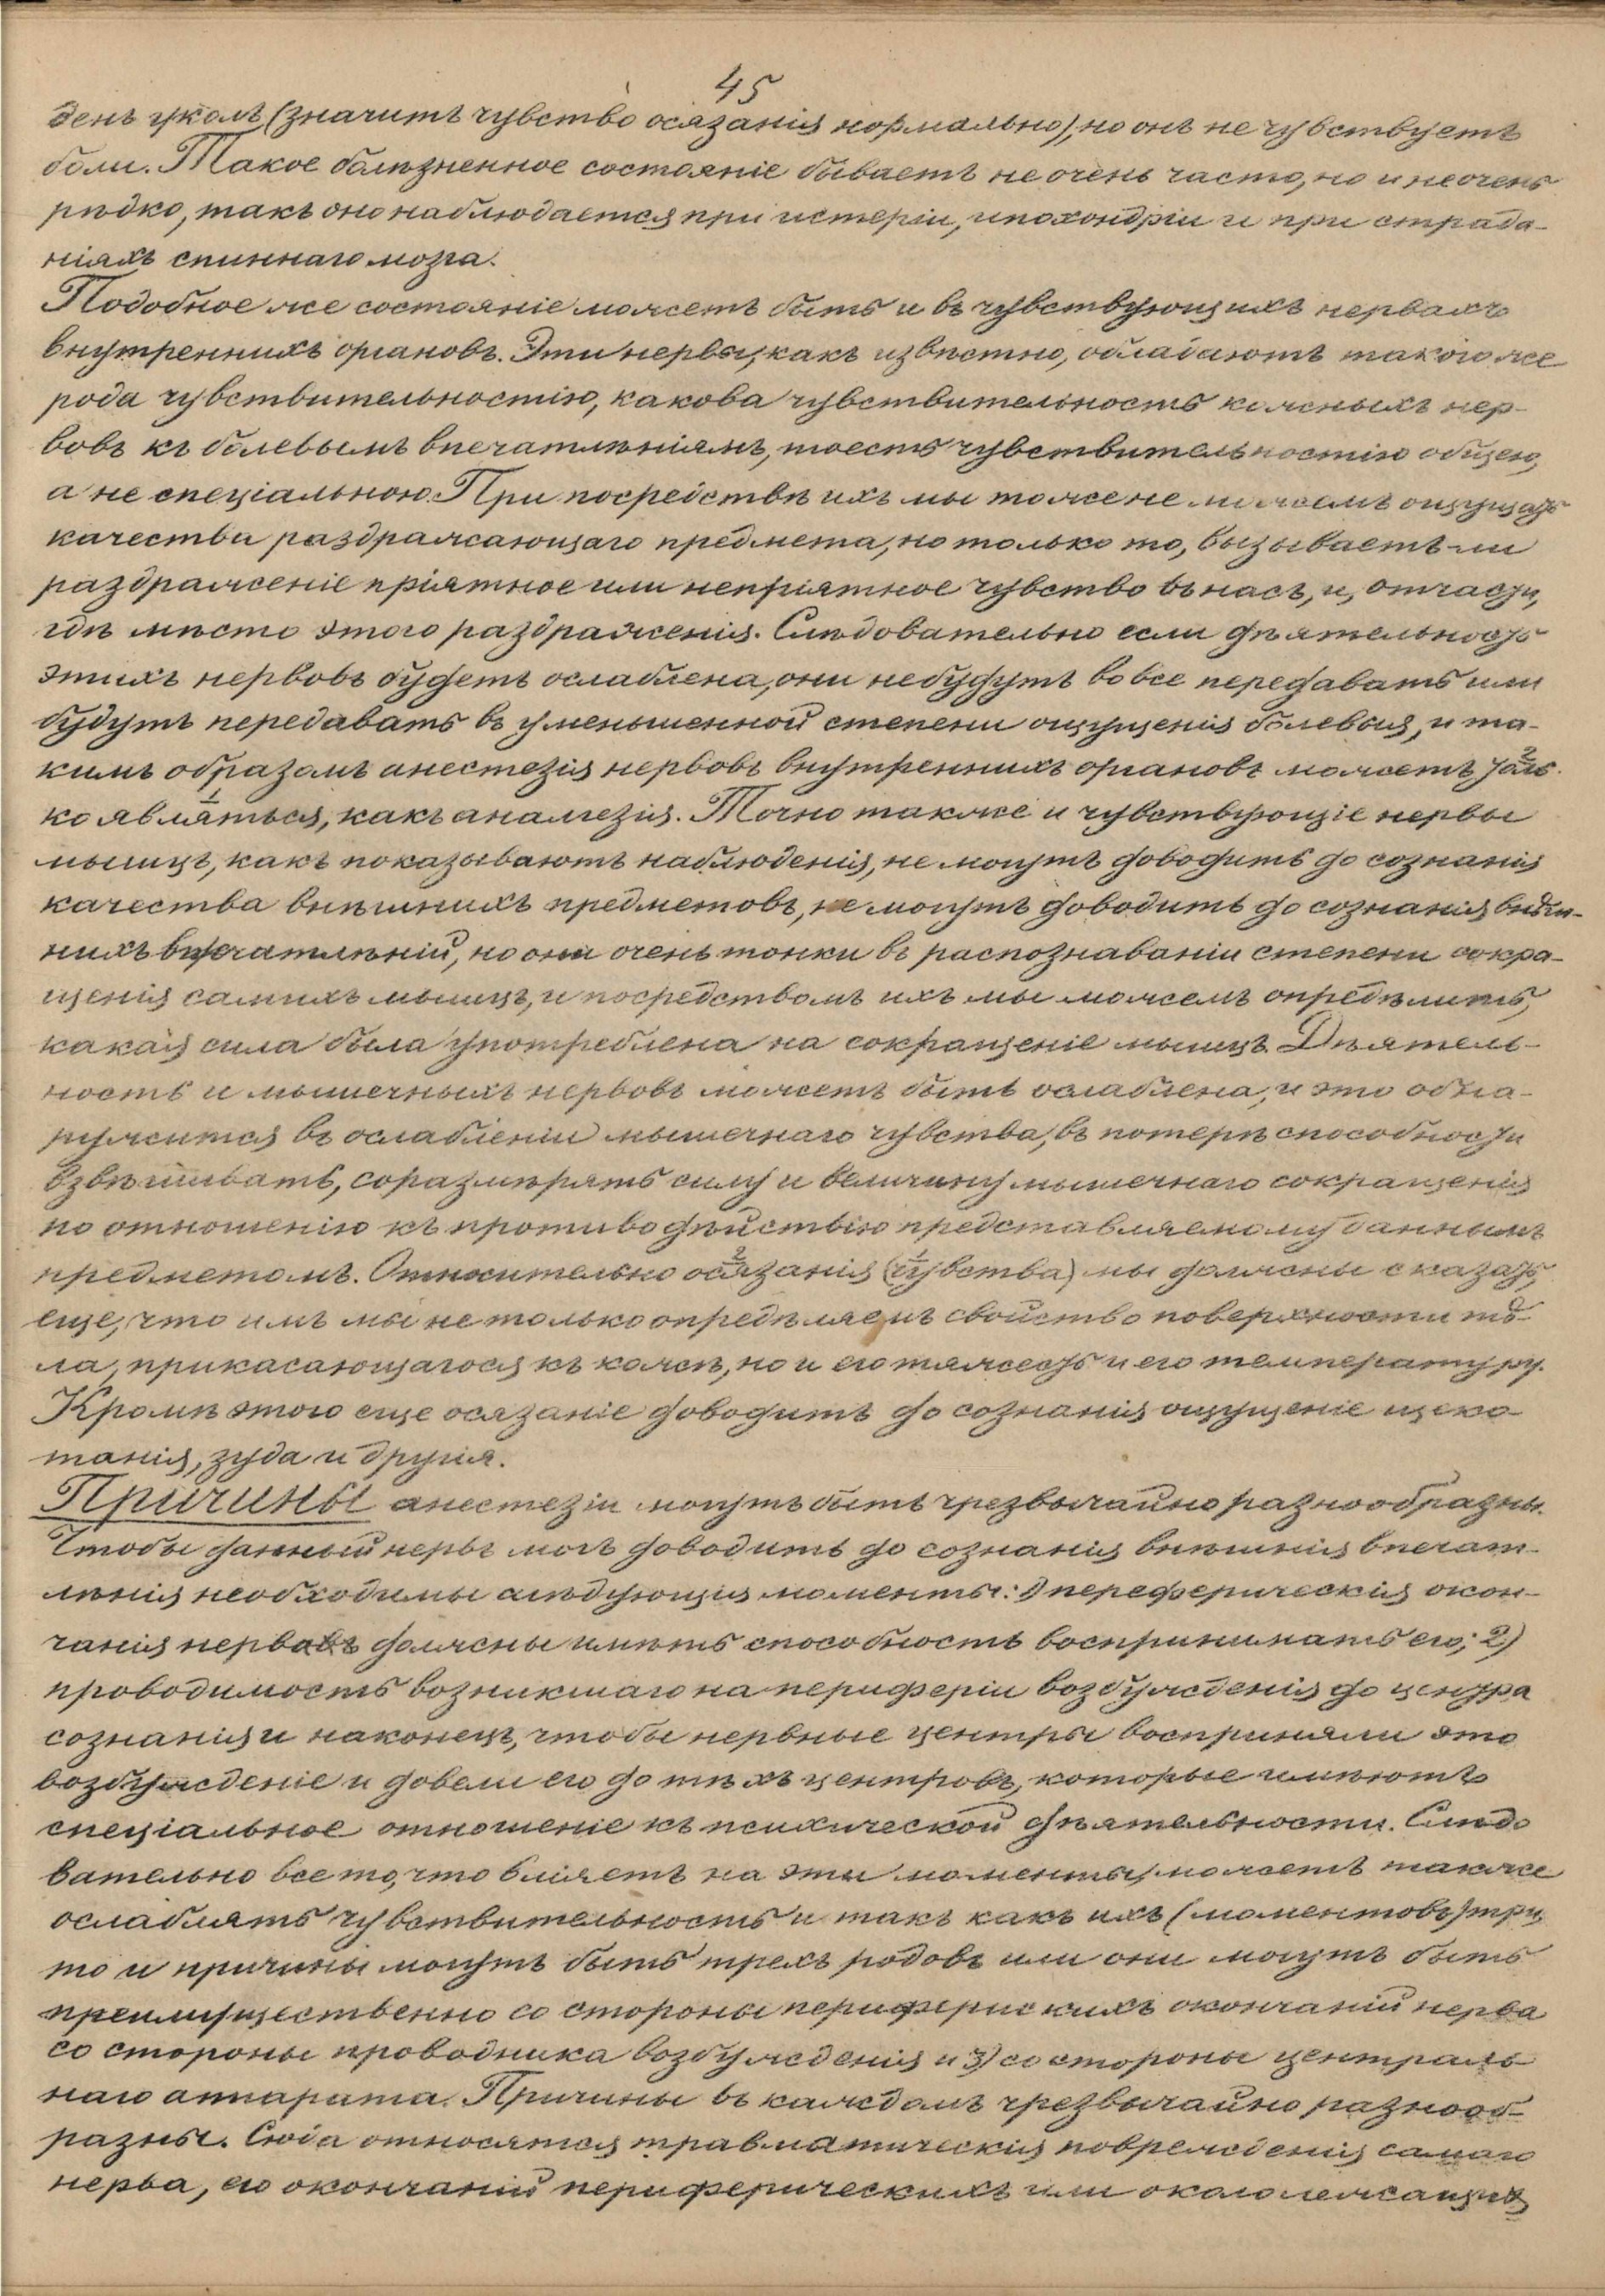 45
денъ уколъ (значитъ чувство осязанія нормально), но онъ не чувствуетъ
боли. Такое болѣзненное состояніе бываетъ не очень часто, но и не очень
рѣдко, такъ оно наблюдается при истеріи, ипохондріи и при страда-
ніяхъ спиннаго мозга.
Подобное же состояніе можетъ быть и въ чувствующихъ нервахъ
внутреннихъ органовъ. Эти нервы, какъ извѣстно, обладаютъ такого же
рода чувствительностію, какова чувствительность кожныхъ нер-
вовъ къ болевымъ впечатлѣніямъ, тоесть чувствительностію общею,
а не спеціальною. При посредствѣ ихъ мы тоже не можемъ ощущать
качества раздражающаго предмета, но только то, вызываетъ-ли
раздраженіе пріятное или непріятное чувство въ насъ, и, отчасти,
гдѣ мѣсто этого раздраженія. Слѣдовательно если дѣятельность
этихъ нервовъ будетъ ослаблена, они небудутъ вовсе передавать или
будутъ передавать въ уменьшенной степени ощущенія болевыя, и та-
кимъ образомъ анестезія нервовъ внутреннихъ органовъ можетъ толь-
ко являться, какъ аналгезія. Точно также и чувствующіе нервы
мышцъ, какъ показываютъ наблюденія, не могутъ доводить до сознанія
качества внѣшнихъ предметовъ, не могутъ доводить до сознанія внѣш-
нихъ впечатлѣній, но они очень тонки въ распознаваніи степени сокра-
щенія самихъ мышцъ, и посредствомъ ихъ мы можемъ опредѣлить,
какая сила была употреблена на сокращеніе мышцъ. Дѣятель-
ность и мышечныхъ нервовъ можетъ быть ослаблена, и это обна-
ружится въ ослабленіи мышечнаго чувства, въ потерѣ способности
взвѣшивать, соразмѣрять силу и величину мышечнаго сокращенія
по отношенію къ противодѣйствію представляемому даннымъ
предметомъ. Относительно осязанія (чувства) мы должны сказать
еще, что имъ мы не только опредѣляемъ свойство поверхности тѣ-
ла, прикасающагося къ кожѣ, но и его тяжесть и его температуру.
Кромѣ этого еще осязаніе доводитъ до сознанія ощущеніе щеко-
танія, зуда и другія.
Причины анестезіи могутъ быть чрезвычайно разнообразны.
Чтобы данный нервъ могъ доводить до сознанія внѣшнія впечат-
лѣнія необходимы слѣдующія моменты: 1) переферическія окон-
чанія нервовъ должны имѣть способность воспринимать его; 2)
проводимость возникшаго на периферіи возбужденія до центра
сознанія и наконецъ, чтобы нервные центры восприняли это
возбужденіе и довели его до тѣхъ центровъ, которые имѣютъ
спеціальное отношеніе къ психической дѣятельности. Слѣдо
вательно все то, что вліяетъ на эти моменты, можетъ также
ослаблять чувствительность и такъ какъ ихъ (моментовъ) три,
то и причины могутъ быть трехъ родовъ или они могутъ быть
преимущественно со стороны периферискихъ окончаній нерва
со стороны проводника возбужденія и 3) со стороны централь
наго аппарата. Причины въ каждомъ чрезвычайно разнооб-
разны. Сюда относятся травматическія поврежденія самаго
нерва, его окончаній периферическихъ или окололежащихъ